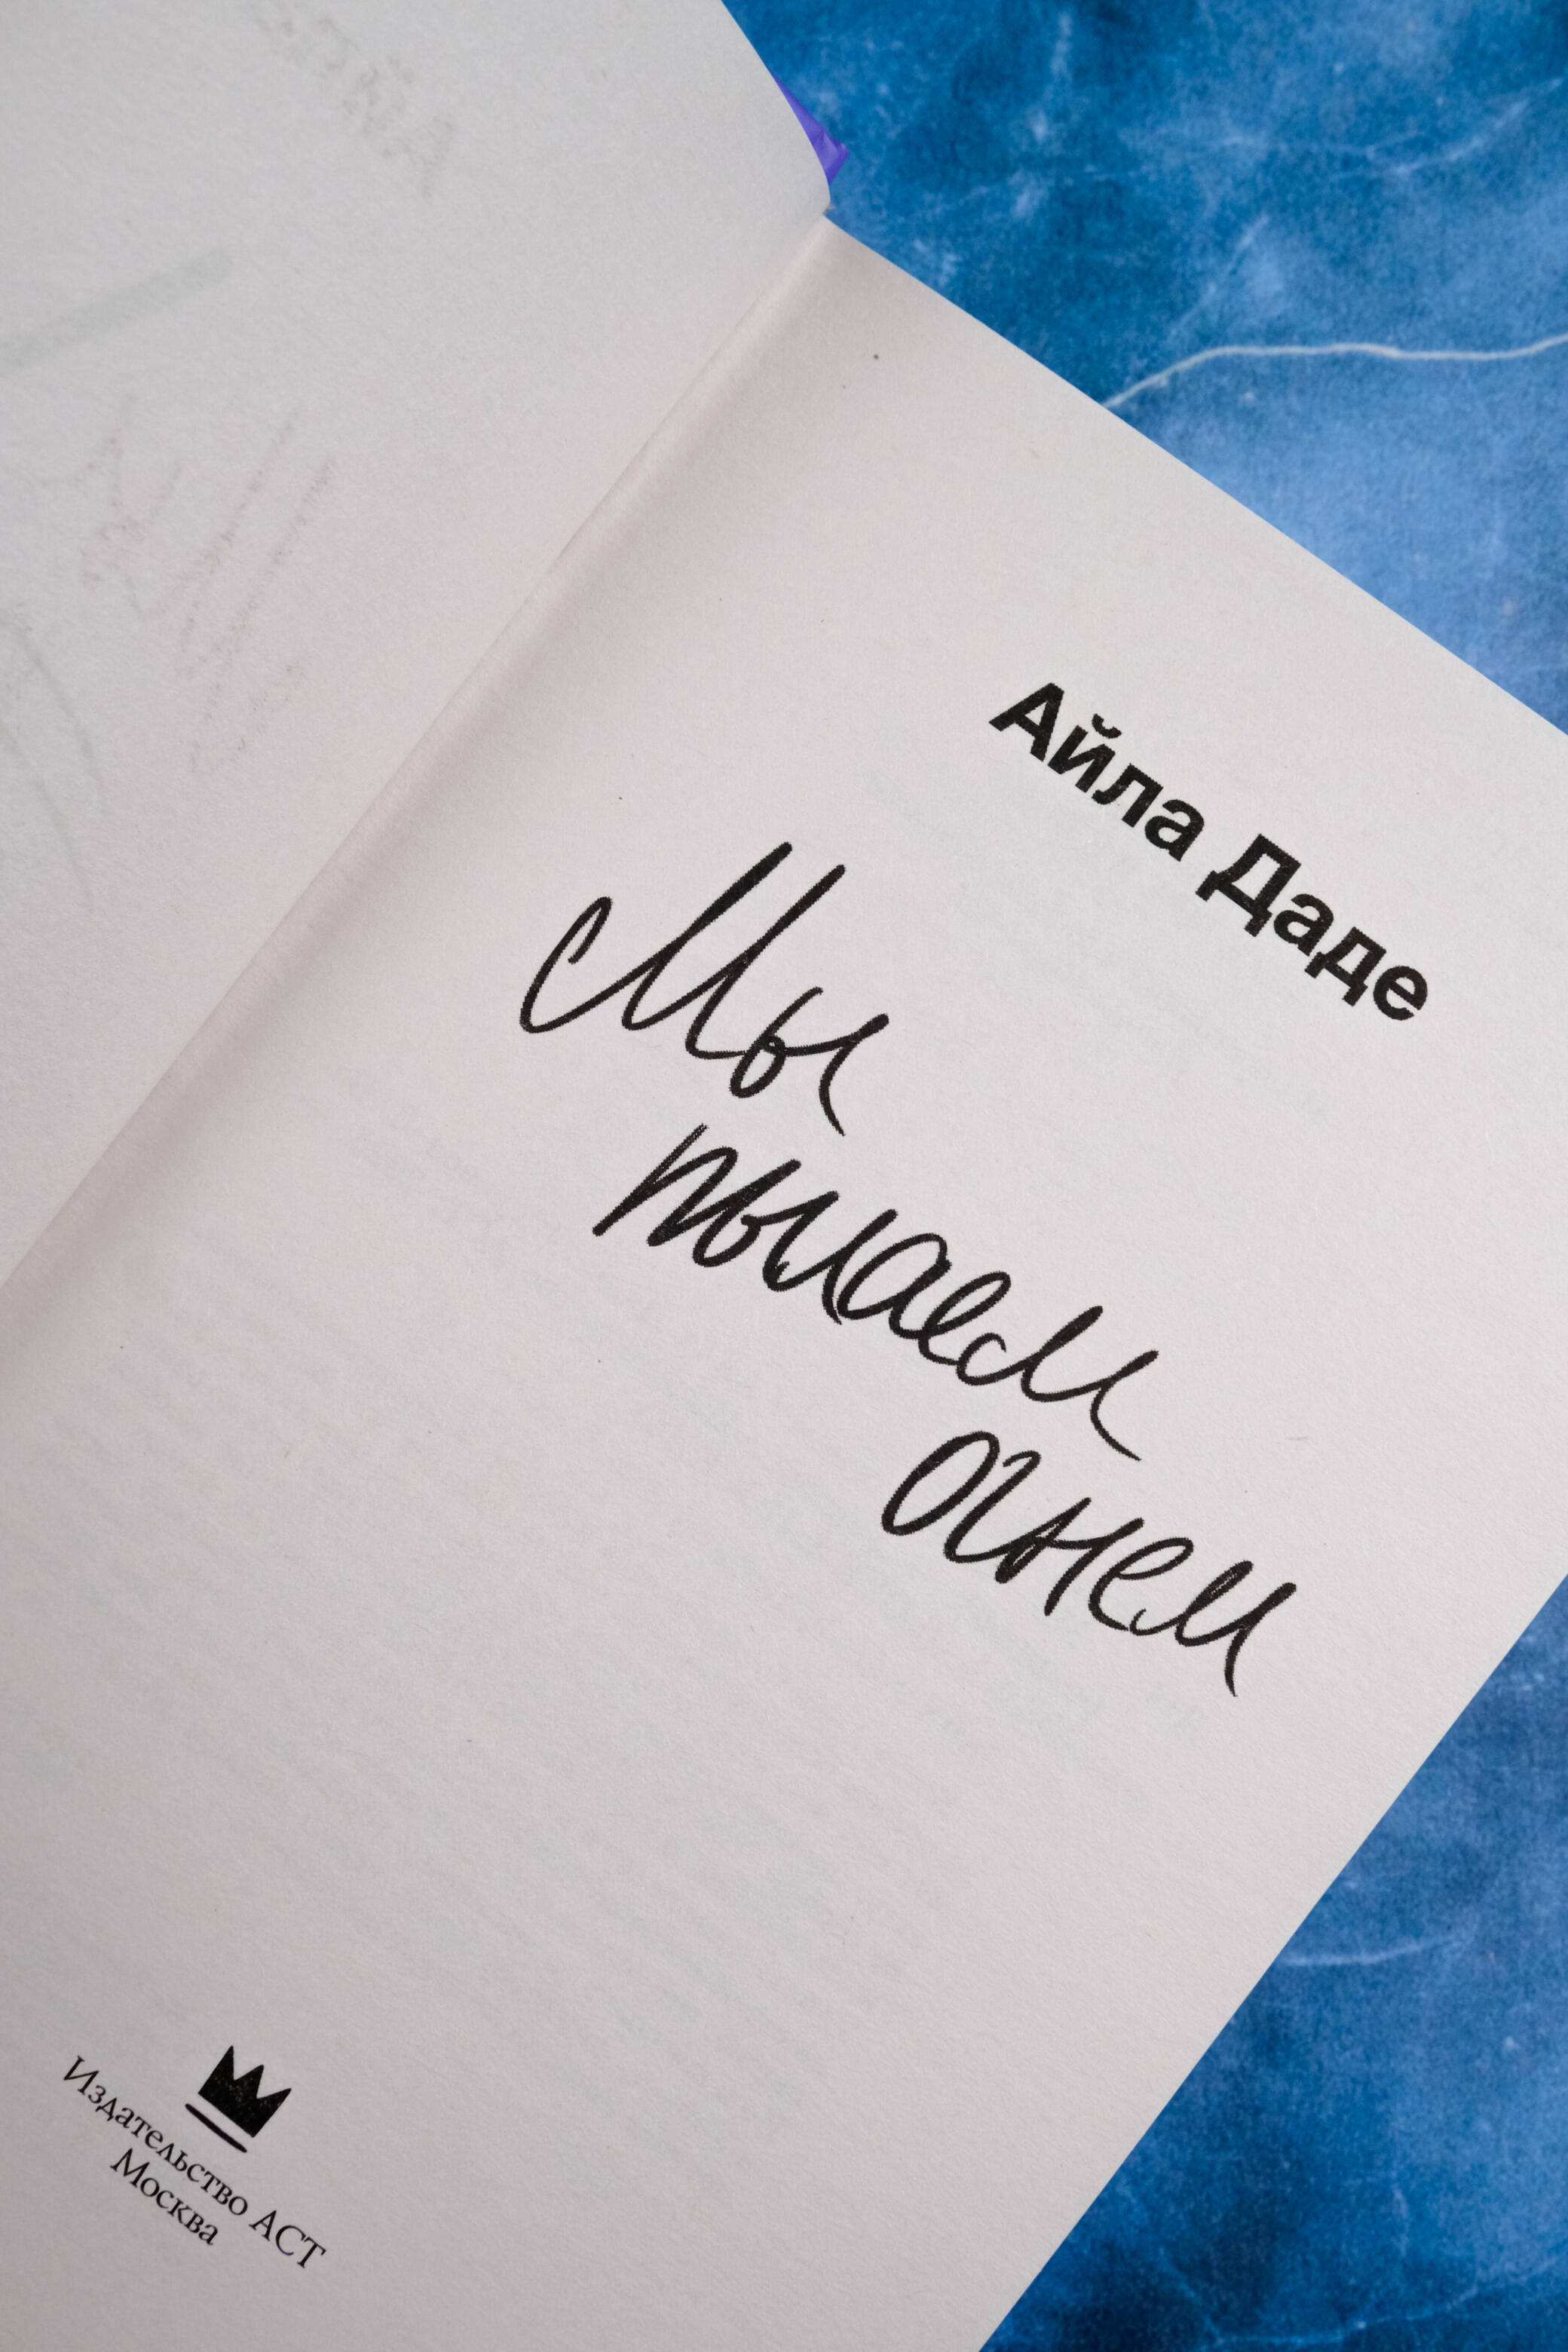 Айла Даде
Мы
пылаем
огнем
Издательство АСТ
Москва